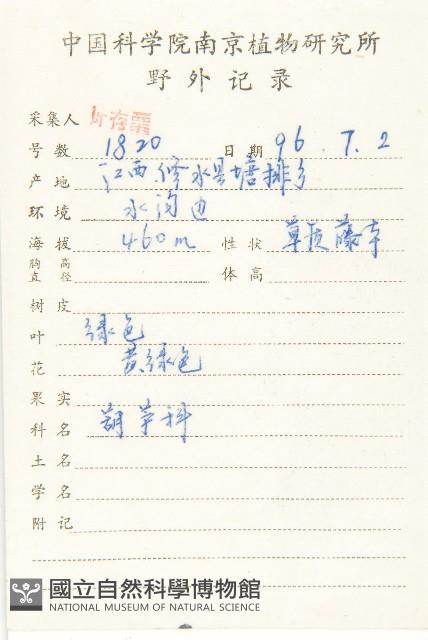 中国科学院南京植物研究所
野外记录
采集人
号数 1820 日期 96.7.2
产地 江西修水县塘排乡
环境 水沟边
海拔 460m 性状 草质藤本
胸高直径 体高
树皮
叶 绿色
花 黄绿色
果实
科名 葫芦科
土名
学名
附记
國立自然科學博物館
NATIONAL MUSEUM OF NATURAL SCIENCE